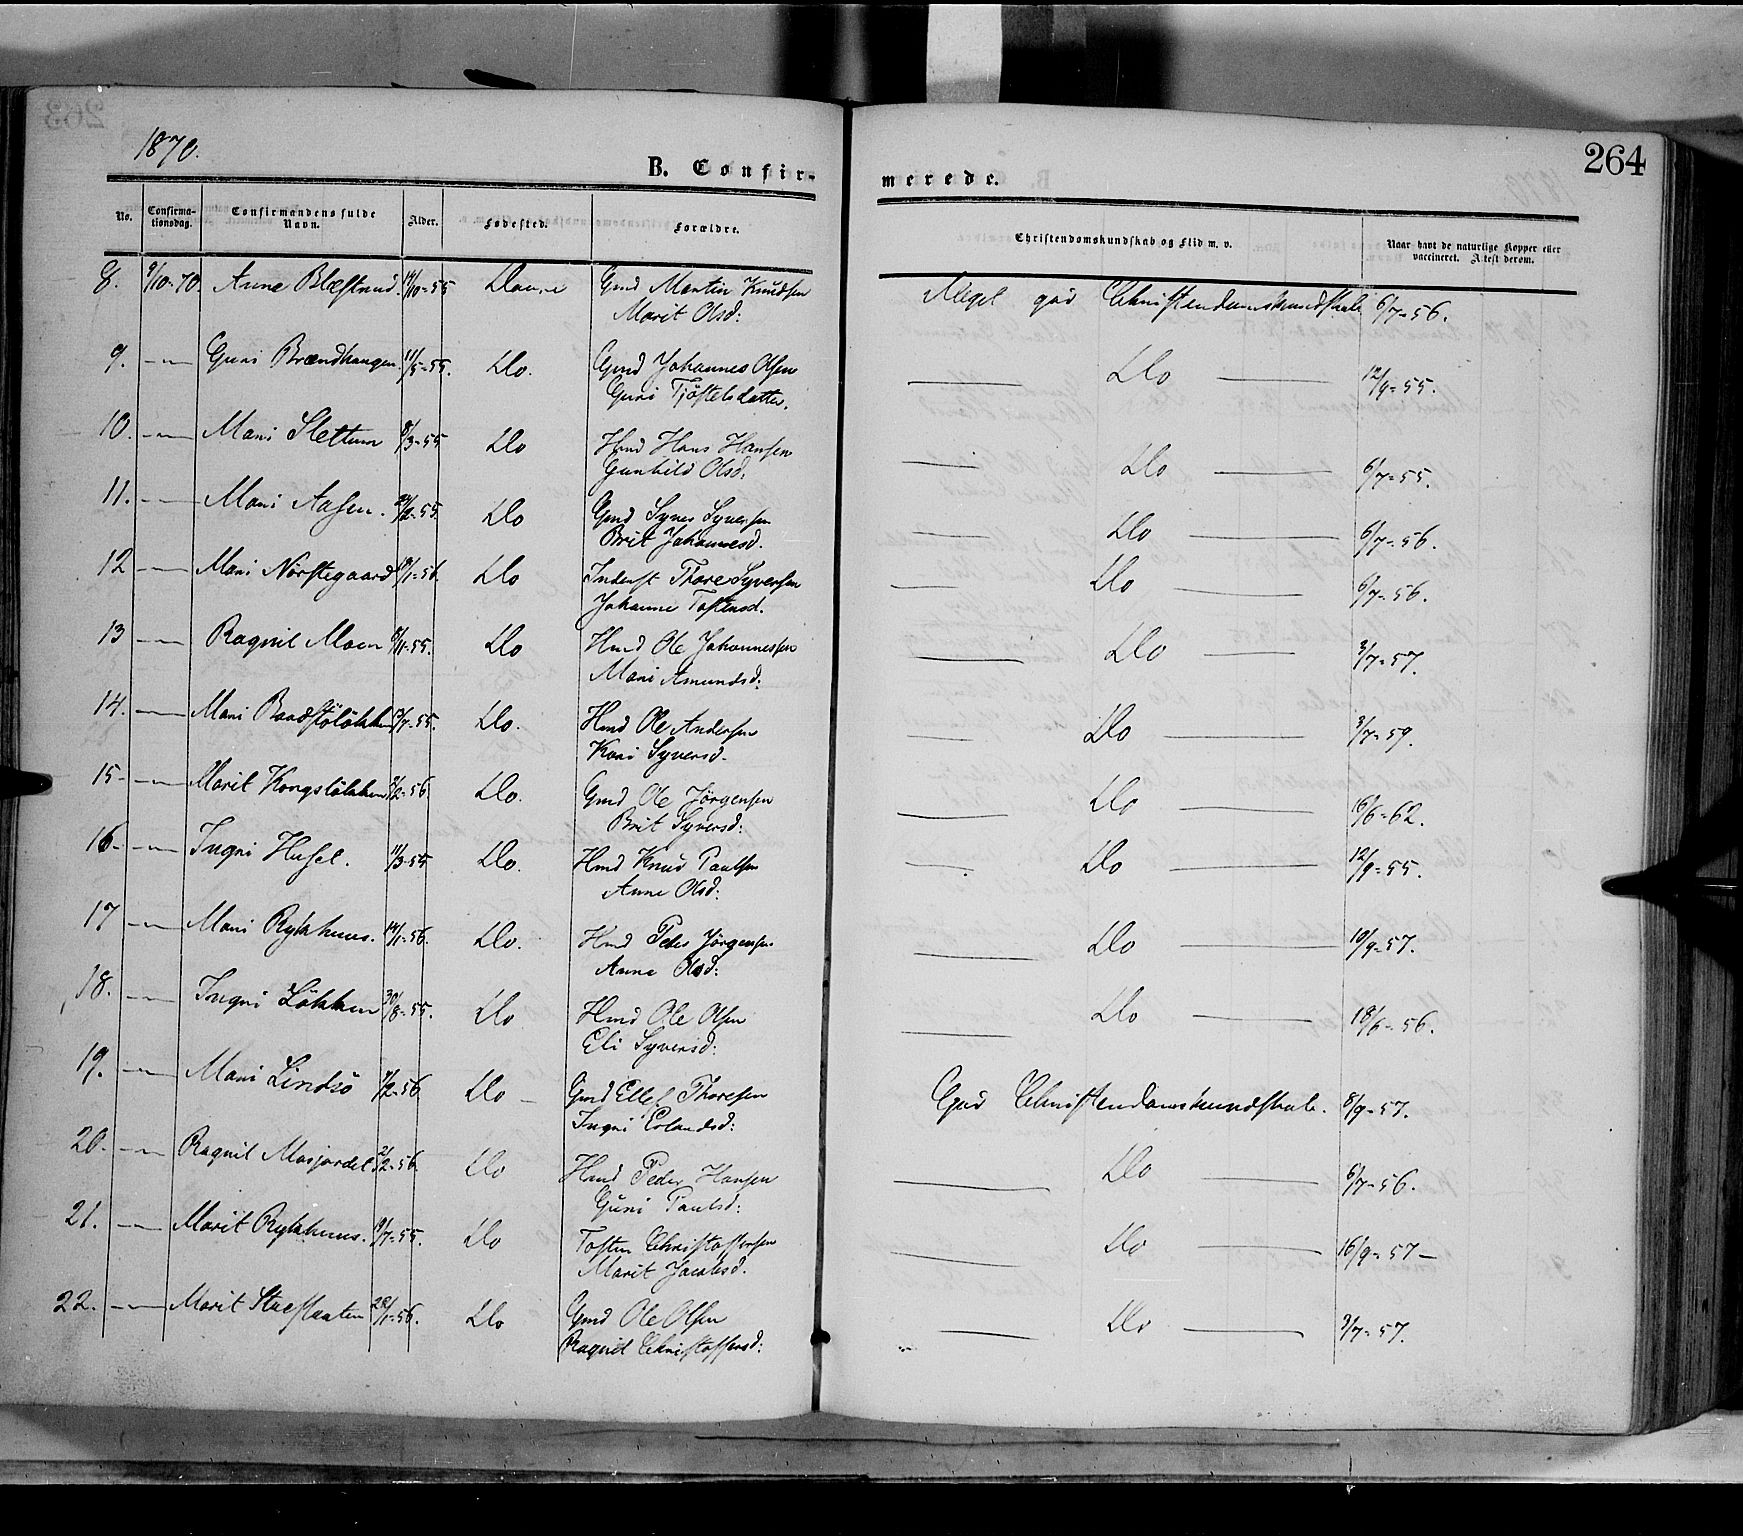 263
1870.
264
B. Confir-
merede.
No.
Confirma-
tionsdag.
Confirmandens fulde
Navn.
Alder.
Fødested.
Forældre.
Christendomskundskab og Flid m. v.
Naar havt de naturlige Kopper eller
vaccineret. Attest derom.
8. 9/10-70. Anne 14/10-55 Gmd Martin Knudsen Meget god Christendomskundskab 6/7-56.
Marit Olsd:
9. -"- Guri Brændhaugen 11/5-55. Do. Gmd Johannes Olsen Do 12/9-55.
Guri Tjöstelsdatter.
10. -"- Mari Slettum 8/3-55 Do Hmd Hans Hansen Do 6/7-55.
Gunhild Olsd.
11. -"- Mari Aasen. 2-55. Do Gmd Syver Syversen Do 6/7-56.
Brit Johannesd.
12 -"- Mari Norstegaard 1-56. Do Inderst Thore Syversen Do 6/7-56.
Johanne Tostensd.
13 -"- Ragnil Moen 8/11-55. Do Hmd Ole Johannessen Do 3/7-57.
Mari Amundsd:
14. -"- Mari 55. Do. Hmd Ole Andersen Do 3/7-59.
Kari Syversd.
15- -"- Marit Kongslökken 2-56. Do. Gmd Ole Jörgensen Do 16/6-62.
Brit Syversd:
16- -"- Ingri 11/3-55 Do. Hmd Knud Paulsen Do 12/9-55.
Anne Olsd:
17 -"- Mari Rykhuus. 14/1-56. Do. Hmd Peder Jörgensen Do 10/9-57.
Anne Olsd:
18. -"- Ingri Lökken 30/8-55. Do Hmd Ole Olsen Do 18/6-56.
Eli Syversd:
19. -"- Mari Lindsö 2-56 Do - Gmd Ellef Thoresen God Christendomskundskab. 8/9-57.
Ingri Erlandsd:
20. -"- Ragnil 2-56. Do Hmd Peder Hansen Do 6/7-56.
Guri Paulsd:
21. -"- Marit Rykhuus. 19/7-55. Do Tosten Christoffersen Do 16/9-57-
Marit Jacobsd.
22. -"- Marit 28/1-56. Do Gmd Ole Olsen Do 3/7-57.
Ragnil Christoffersd: